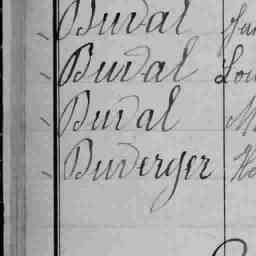 Duval
Duval Lou
Duval M
Duverger